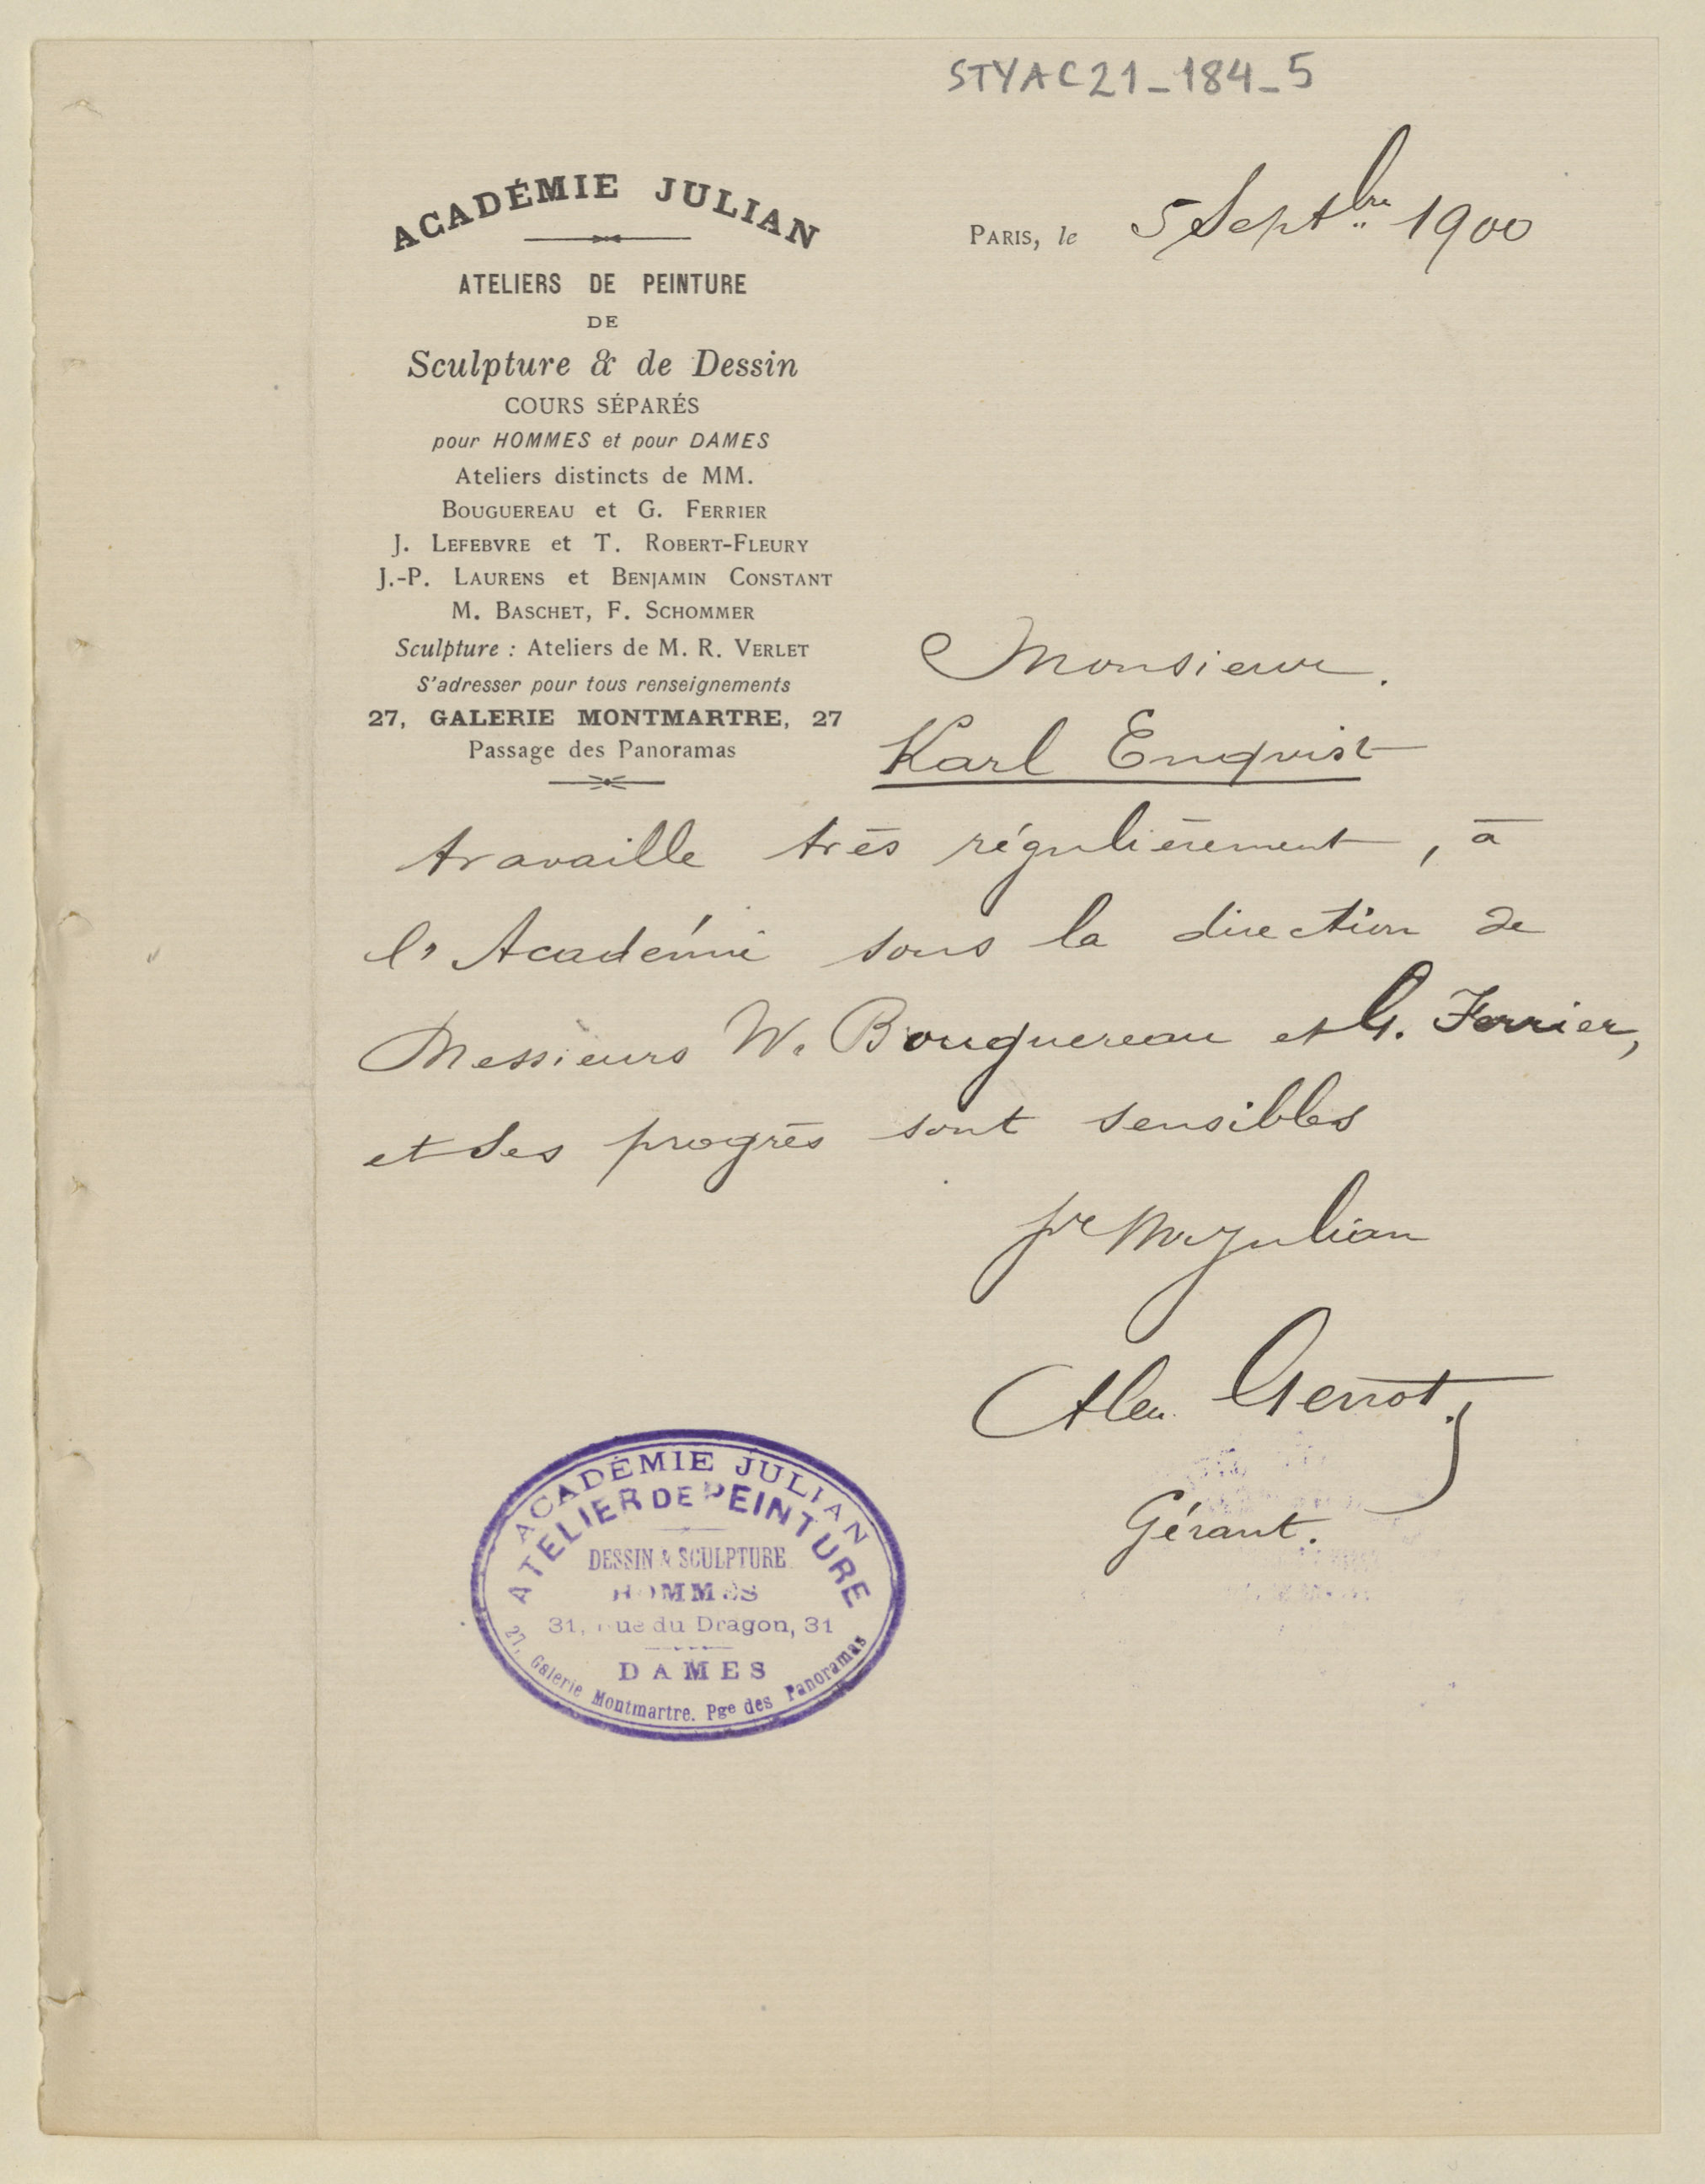 STYAC21_184_5
ACADÉMIE JULIAN
ATELIERS DE PEINTURE
DE
Sculpture & de Dessin
COURS SÉPARÉS
pour HOMMES et pour DAMES
Ateliers distincts de MM.
BOUGUEREAU et G. FERRIER
J. LEFEBVRE et T. ROBERT-FLEURY
J.-P. LAURENS et BENJAMIN CONSTANT
M. BASCHET, F. SCHOMMER
Sculpture : Ateliers de M. R. VERLET
S'adresser pour tous renseignements
27, GALERIE MONTMARTRE, 27
Passage des Panoramas
PARIS, le 5 Septbre 1900
Monsieur.
Karl Enquist
travaille très régulièrement, à
l'Académie sous la direction de
Messieurs W. Bouguereau et G. Ferrier,
et ses progrès sont sensibles
pr Mr Julian
Gérant.
ACADÉMIE JULIAN
ATELIER DE PEINTURE
DESSIN & SCULPTURE
HOMMES
31, rue du Dragon, 31
DAMES
27, Galerie Montmartre. Pge des Panoramas